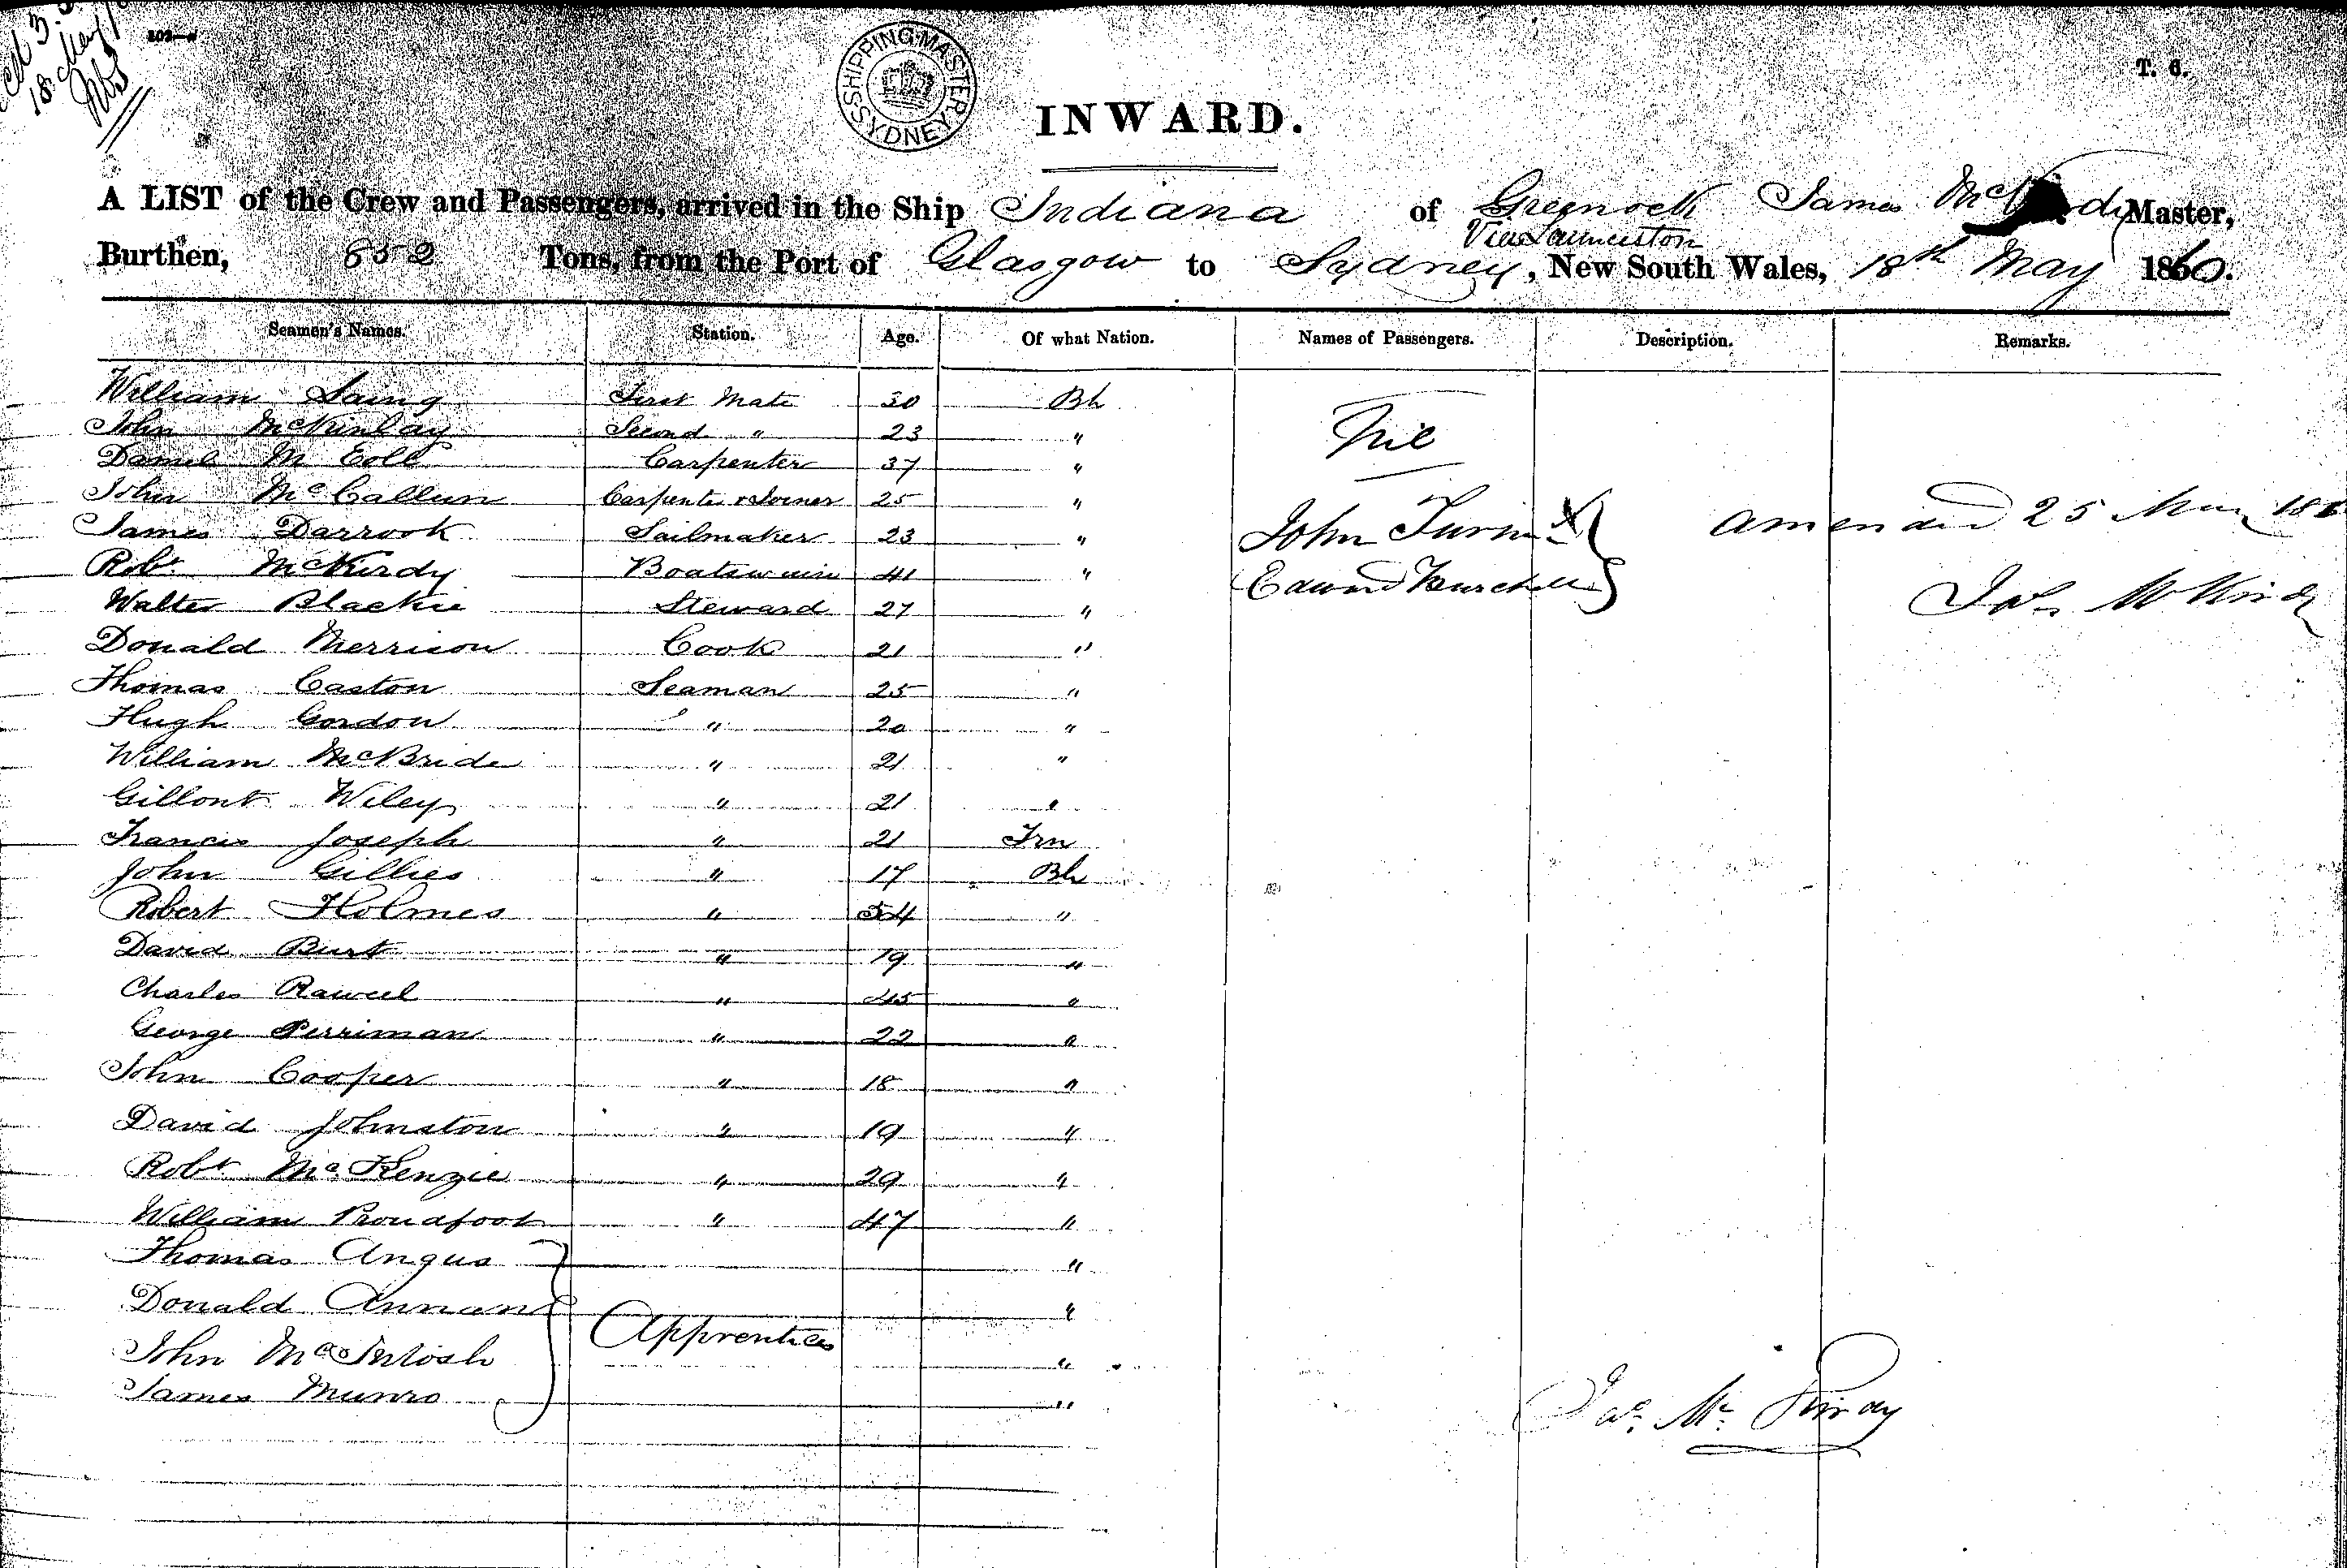 18 May
SHIPPING MASTER SYDNEY
T. 6.
INWARD.
A LIST of the Crew and Passengers, arrived in the Ship Indiana of Greenock James Master,
Via Launceston
Burthen, 852 Tons, from the Port of Glasgow to Sydney, New South Wales, 18th May 1860.
Seamen's Names. Station. Age. Of what Nation. Names of Passengers. Description. Remarks.
William Laing First Mate 30 Bh Nil
John McKinlay Second " 23 "
Daniel M Coll Carpenter 37 "
John McCallum Carpenter & Joiner 25 "
James Darrook Sailmaker 23 " John Turner X Amended 25 May
Robt McKurdy Boatswain 41 " Edward Burchell
Walter Blackie Steward 27 " Jas McKirdy
Donald Merrison Cook 21 "
Thomas Caston Seaman 25 "
Hugh Gordon " 20 "
William McBride " 21 "
Gillont Wiley " 21 "
Francis Joseph " 21 Frn
John Gillies " 17 Bh
Robert Holmes " 54 "
David Burt " 19 "
Charles " 45 "
George Perriman " 22 "
John Cooper " 18 "
David Johnston " 19 "
Robt McKenzie " 29 "
William Proudfoot " 47 "
Thomas Angus "
Donald Annan "
Apprentices
John McIntosh "
James Munro "
Jas McKirdy